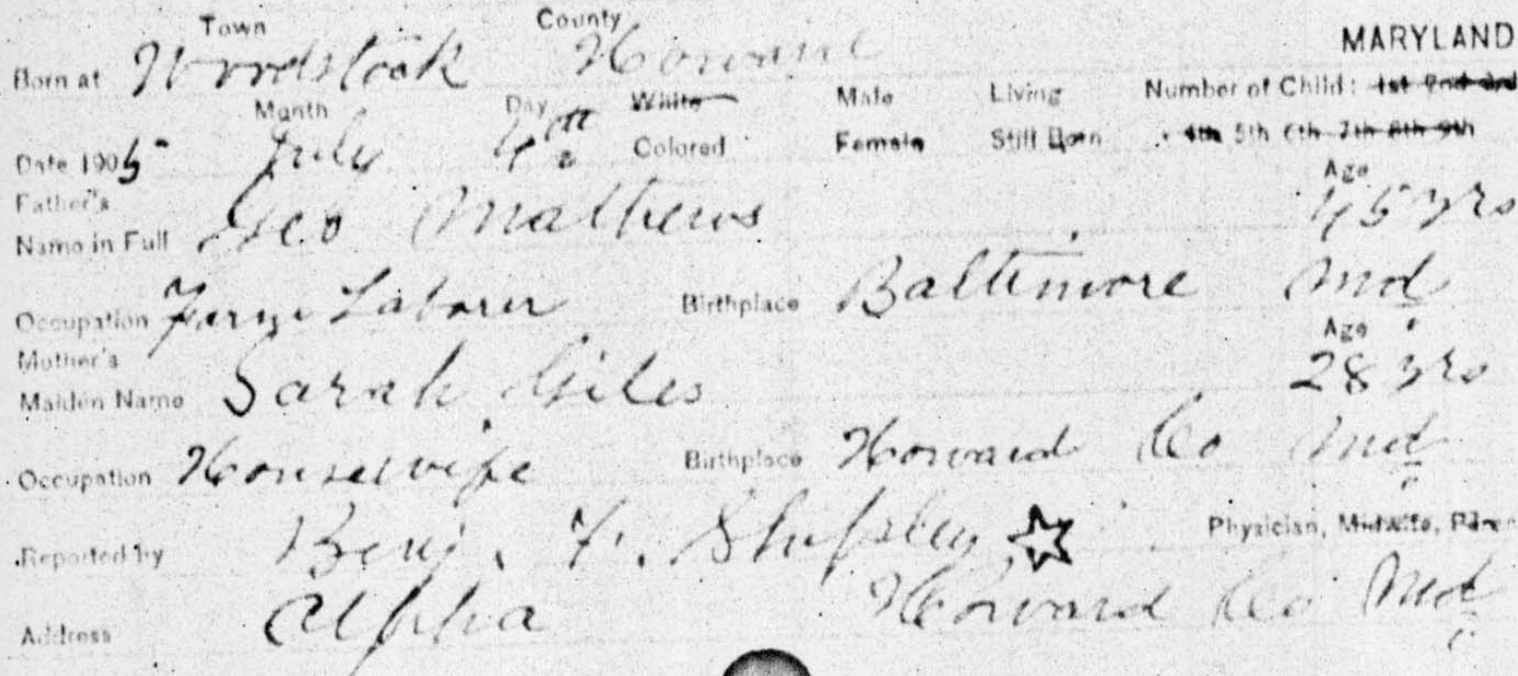 Town County MARYLAND
Born at Woodstock Howard
Month Day White Male Living Number of Child: 1st 2nd 3rd
Date 1905 July 4th Colored Female Still Born 4th 5th 6th 7th 8th 9th
Father's Age
Name in Full Geo Mathews 45 yrs
Occupation Farm Laborer Birthplace Baltimore Md
Mother's Age
Maiden Name Sarah Giles 28 yrs
Occupation Housewife Birthplace Howard Co Md
Reported by Benj. F. Shipley Physician, Midwife, Paren
Address Alpha Howard Co Md